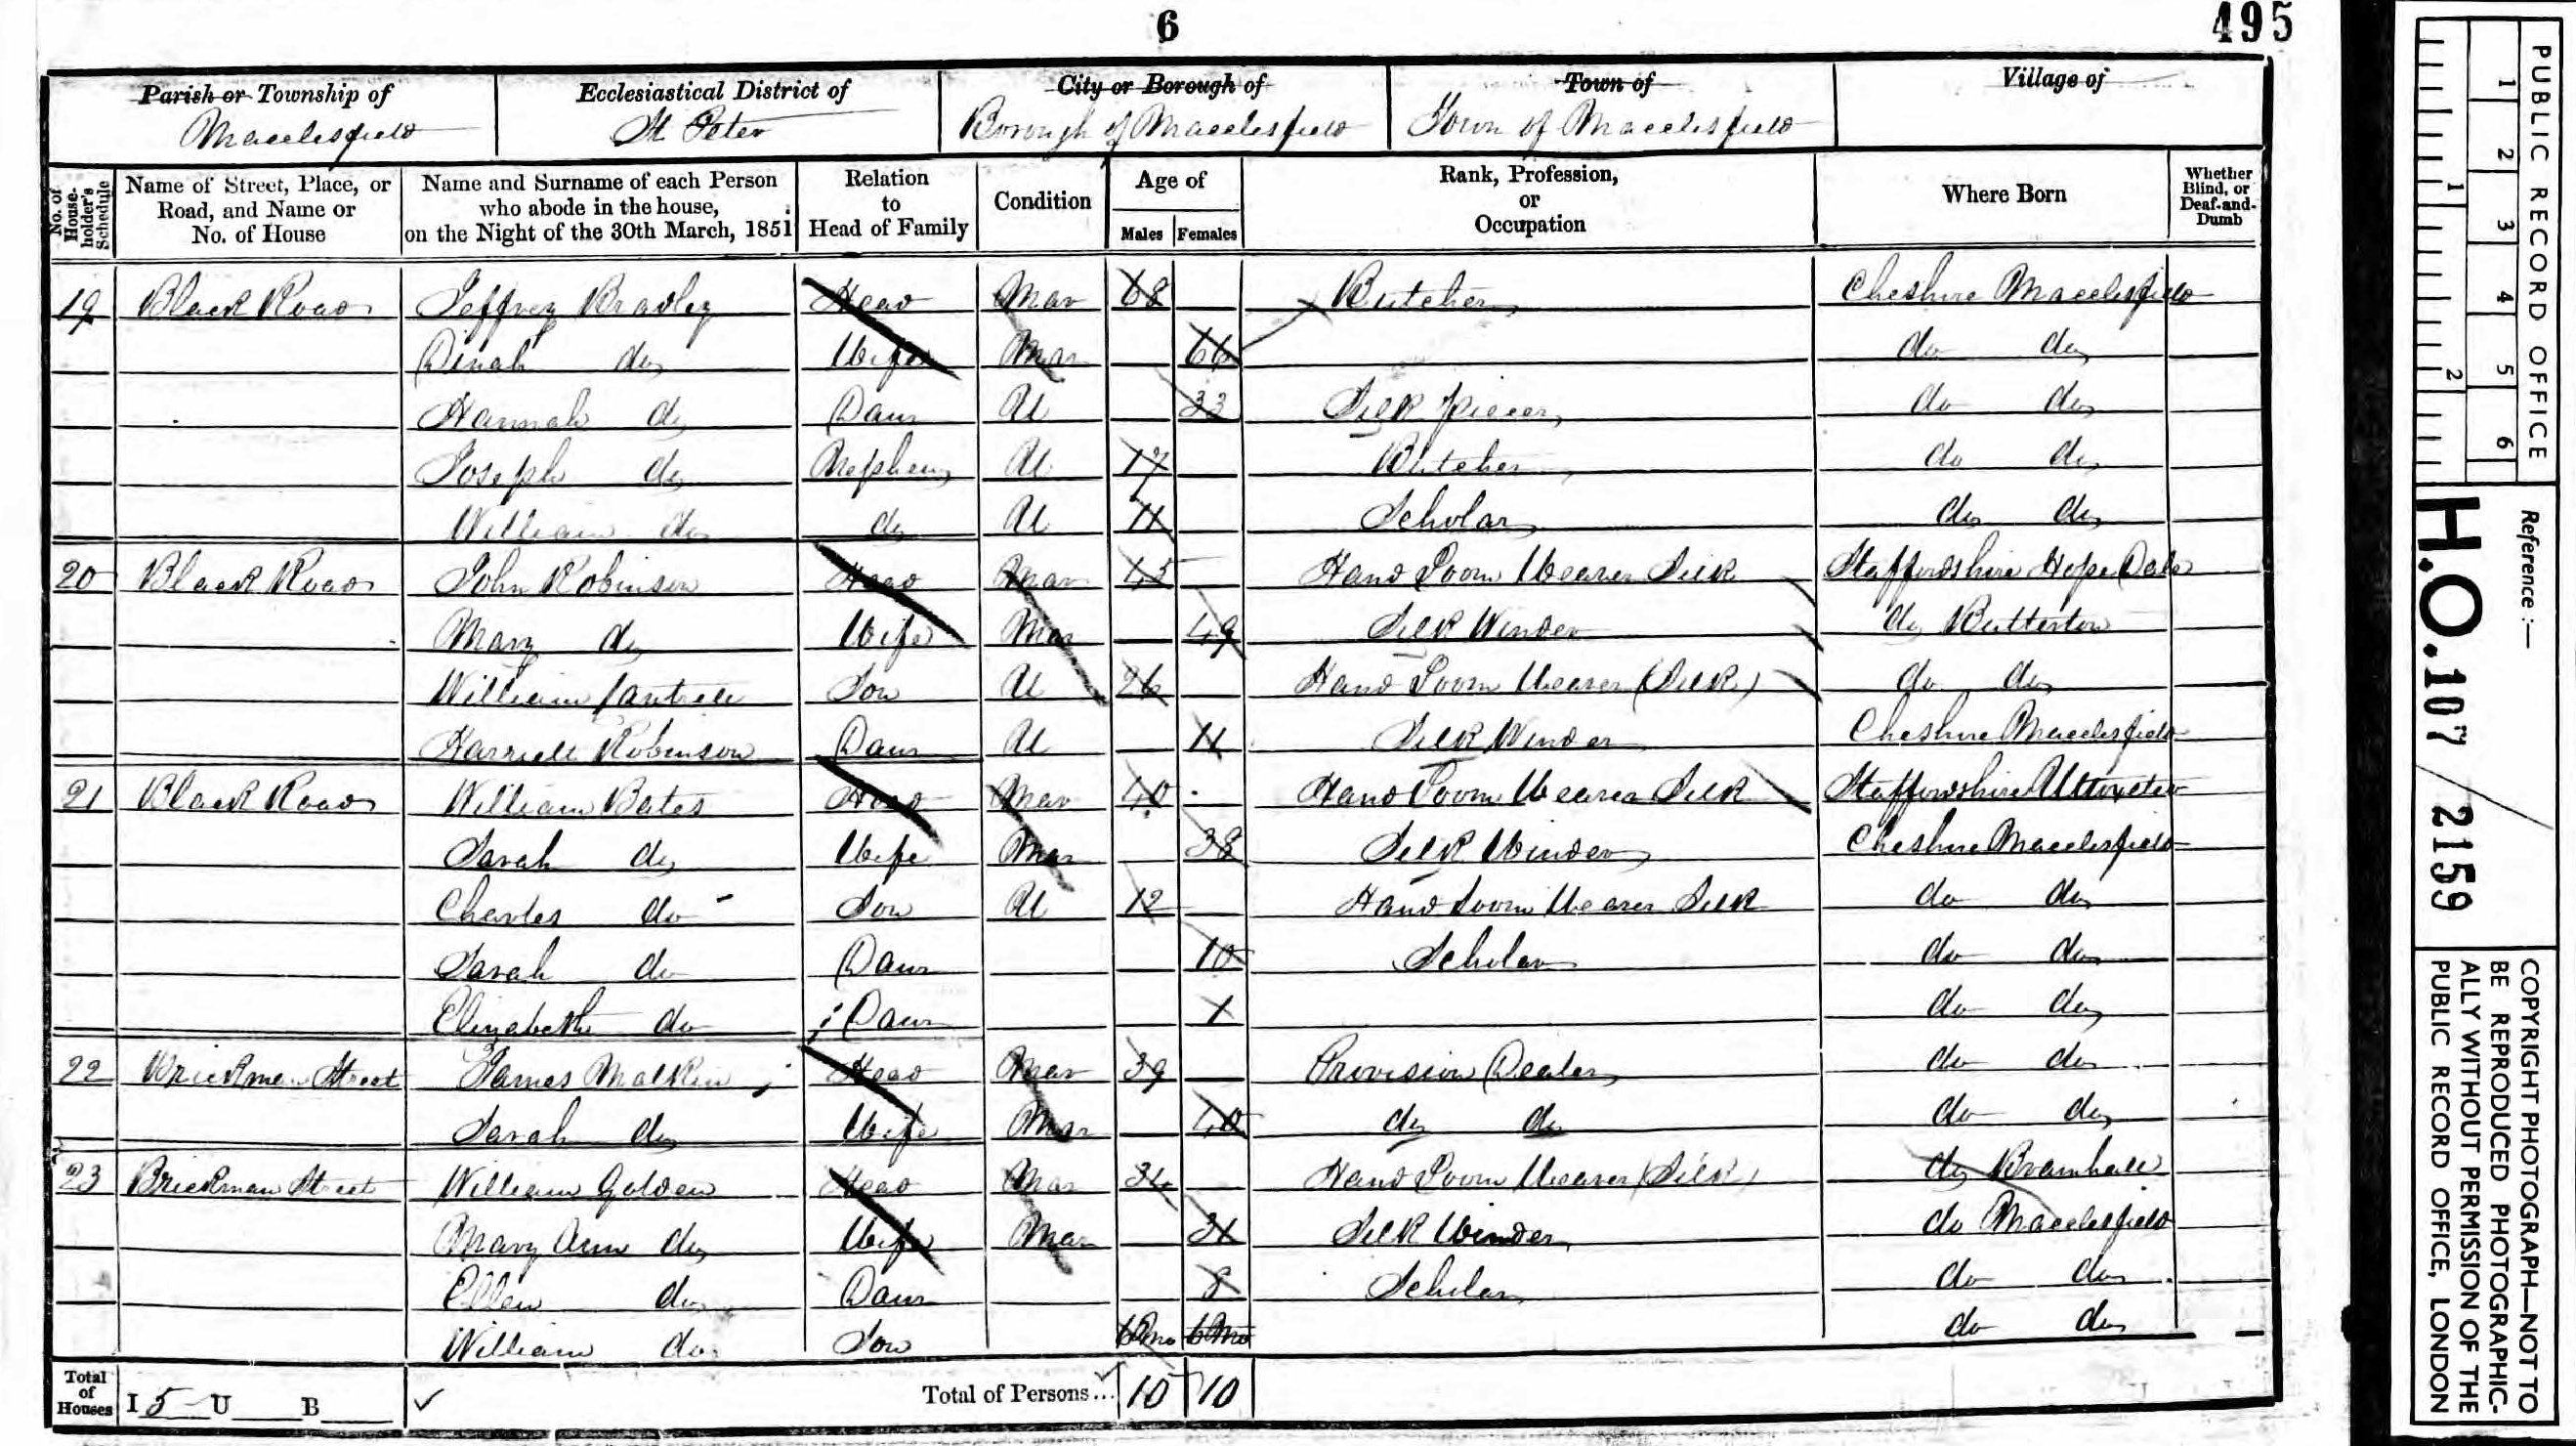 6
495
Parish or Township of
Macclesfield
Ecclesiastical District of
St Peter
City or Borough of
Borough of Macclesfield
Town of
Town of Macclesfield
Village of
No. of House-holder's Schedule
Name of Street, Place, or Road, and Name or No. of House
Name and Surname of each Person who abode in the house, on the Night of the 30th March, 1851
Relation to Head of Family
Condition
Age of
Males Females
Rank, Profession, or Occupation
Where Born
Whether Blind, or Deaf-and-Dumb
19 Black Road Jeffrey Bradley Head Mar 68 Butcher Cheshire Macclesfield
Dinah do Wife Mar 66 do do
Hannah do Daur U 33 Silk Piecer do do
Joseph do Nephew U 17 Butcher do do
William do do U 11 Scholar do do
20 Black Road John Robinson Head Mar 45 Hand Loom Weaver Silk Staffordshire Hope Dale
Mary do Wife Mar 49 Silk Winder do Butterton
William Cantrell Son U 26 Hand Loom Weaver (Silk) do do
Harriett Robinson Daur U 11 Silk Winder Cheshire Macclesfield
21 Black Road William Bates Head Mar 40 Hand Loom Weaver Silk Staffordshire Uttoxeter
Sarah do Wife Mar 38 Silk Winder Cheshire Macclesfield
Charles do Son U 12 Hand Loom Weaver Silk do do
Sarah do Daur 10 Scholar do do
Elizabeth do Daur 1 do do
22 Brickman Street James Malkin Head Mar 39 Provision Dealer do do
Sarah do Wife Mar 40 do do do do
23 Brickman Street William Golden Head Mar 34 Hand Loom Weaver (Silk) do Bramhall
Mary Ann do Wife Mar 31 Silk Winder do Macclesfield
Ellen do Daur 8 Scholar do do
William do Son 6 Mo 6 Mo do do
Total of Houses I 5 U B Total of Persons... 10 10
PUBLIC RECORD OFFICE
1 2 3 4 5 6
1 2
Reference :—
H.O.107 / 2159
COPYRIGHT PHOTOGRAPH—NOT TO
BE REPRODUCED PHOTOGRAPHIC-
ALLY WITHOUT PERMISSION OF THE
PUBLIC RECORD OFFICE, LONDON